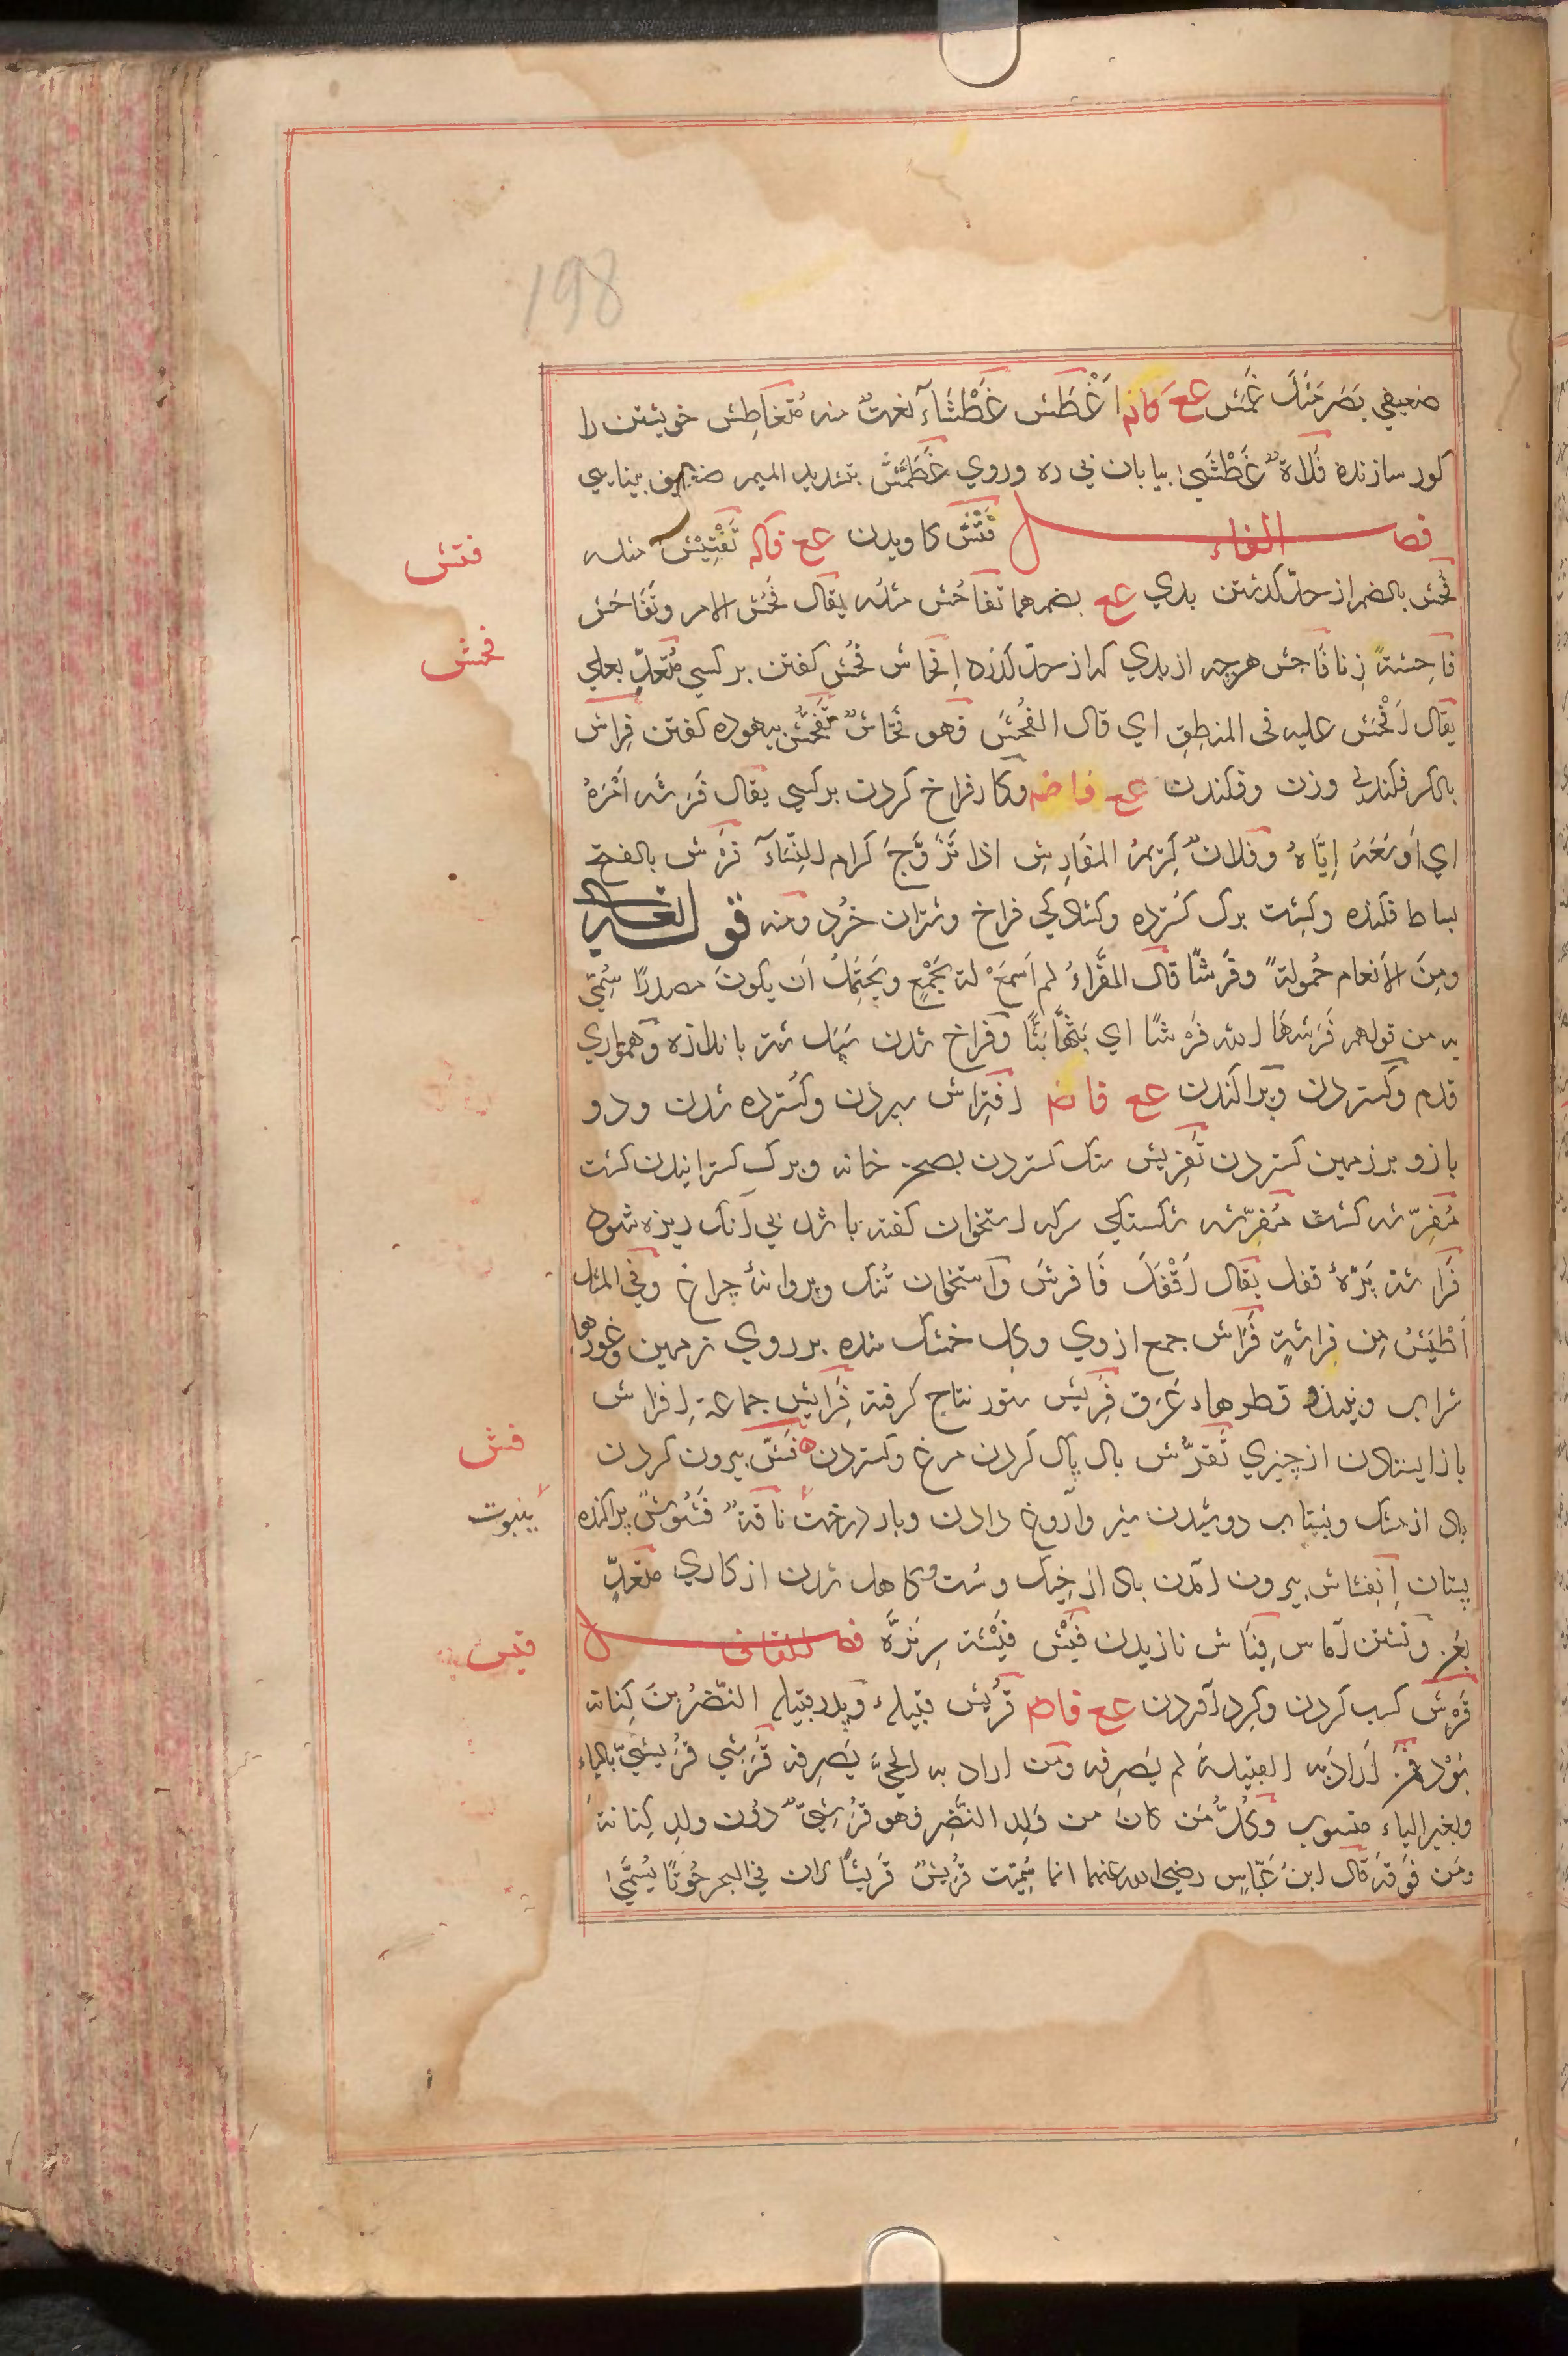 198
ضعیفي بَصَر مثل غَمَش عع كانه اَغْطَش غَطْشَآء نعتٌ منه مُتَغاطِش خویشتن را
کور سازنده فَلاةٌ غَطْشَیٰ بیابان بي ره وروي غَطَمَّش بتشدید المیم ضعیف بینایي
فصل الفاء فَتْش کاویدن عع فاکه تَفْتِیْش مثله
فتش
فُحْش بالضم از حدّ گذشتن بدي عع بضمهما تفاحُش مثله یقال فَحُش الامر وتَفَاحَش
فحش
فَاحِشَةٌ زِنا فاحِش هرچه از بدي که از حدّ گذرد اِفحاش فُحْش گفتن بر کسي مُتَعَدٍّ بعلي
یقال اَفْحَش علیه في المنطِقِ اي قال الفُحْشَ فهو فَحّاشٌ تَفَحُّش بیهوده گفتن فِراش
بالکسر فکندني وزن وفکندن عع فاضه وکار فراخ کردن بر کسي یقال فَرَشَه اَمْرَهُ
اي اَوسَعَهُ اِیَّاهُ وفلانٌ کَرِیمُ المفَارِش اذا تَزَوَّجَ کرام النِّسَآء فَرْش بالفتح
بساط فکنده وکِشت برگ گسترده وکشادگي فراخ وشتران خُرد ومنه قوله تعالی
ومِنَ الاَنعام حُمولةً وفَرشًا قال الفَرَّاءُ لم اَسمَعْ له بجَمْعٍ ویَحتَمِلُ اَن یکونَ مصدرًا سُمِّي
به من قولهم فَرَشَهَا الله فَرْشًا اي بَثَّهَا بَثًّا وفراخ شدن سَپَل شتر باندازه وهمواري
قدم وگستردن وپراکندن عع فاضه اِفتِراش سپردن وگسترده شدن ودو
بازو بر زمین گستردن تَفرِیش سنگ گستردن بصحن خانه وبرگ گسترانیدن کشت
مُفَرِّشه کشت مُفَرِّشه شکستگي سرکه استخوان کفته باشد بي آنک ریزه شود
فَراشَة پَرّهٔ قفل یقال اَقْفَلَ فَافرشَ واستخوان تُنُک وپروانهٔ چراغ وفي المثل
اَطْیَشُ مِن فِراشةٍ فَرَاش جمع از وي وگِل خشک شده بر روي زمین وغورها
شراب ونبیذ وقطرهاء عَرَق فَرِیش ستور نتاج گرفته فَرَائِش جماعة اِفراش
باز ایستادن از چیزي تَفَرُّش بال بال کردن مرغ وگستردن فَشّ بیرون کردن
فش
باد از مشک وبشتاب دوشیدن شیر وآروغ دادن وبار درخت ناقةٌ فَشُوشٌ پراکنده
ینبوت
پستان اِنفِشاش بیرون آمدن باد از خِیک وسُست وکاهل شدن از کاري متعَدٍّ
بعَن ونشستن آماس فِیَاش نازیدن فَیْش فَیْشة سرِ نرّه فصل القاف
قَرْش کسب کردن وگِرد آوردن عع فاضه قُرَیش قبیلهء وپدر قبیله النَّضْرُ بنَ کِنانه
اَرَادَ به القبیلةَ لم یَصرِفه ومَن اراد به الحيَّ یَصرِفه قُرَشي قُرَیشِيّ بالیاء
وبغیر الیاء منسوب وکُلُّ مَن کان من وَلِد النَّضِر فهو قُرَشِيٌّ دُون ولِد کِنانةَ
ومَن فَوقَه قال ابنُ عَبّاسٍ رضي الله عنهما انما سُمِّیَت قُرَیشٌ قُرَیشًا لان في البحر حُوتًا یُسَمَّیٰ